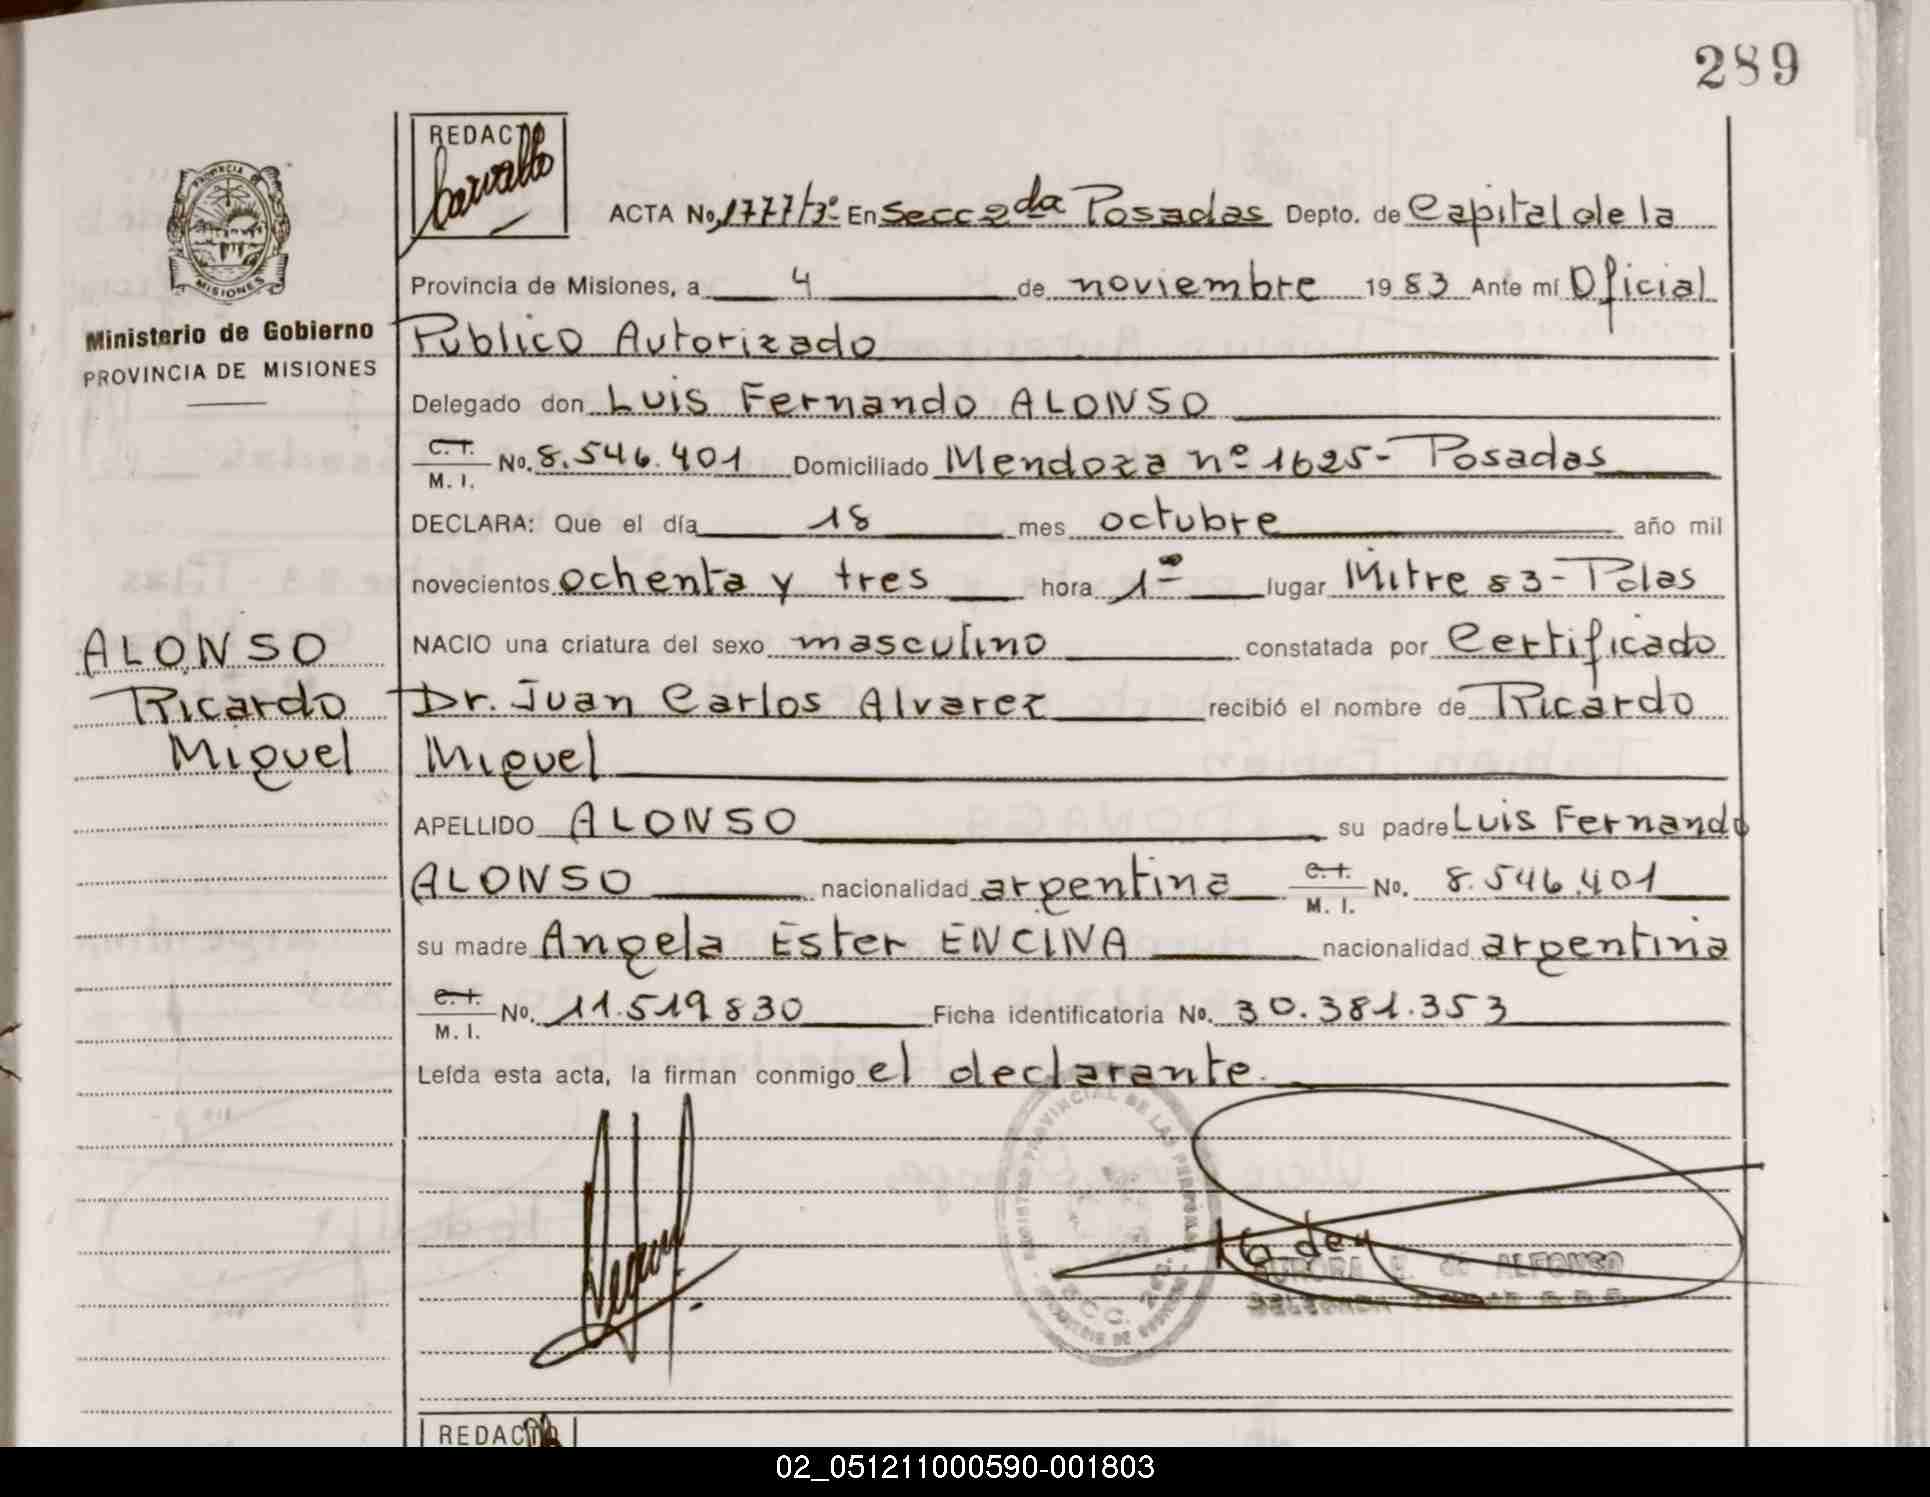 289
REDACTO
Carvallo
PROVINCIA
MISIONES
Ministerio de Gobierno
PROVINCIA DE MISIONES
ACTA No. 1777/3º En Secc 2da Posadas Depto. de Capital de la
Provincia de Misiones, a 4 de noviembre 1983 Ante mí Oficial
Publico Autorizado
Delegado don Luis Fernando ALONSO
C.I. / M. I. No. 8.546.401 Domiciliado Mendoza nº 1625 - Posadas
DECLARA: Que el día 18 mes octubre año mil
novecientos ochenta y tres hora 1º lugar Mitre 83 - Pdas
NACIO una criatura del sexo masculino constatada por Certificado
Dr. Juan Carlos Alvarez recibió el nombre de Ricardo
Miguel
ALONSO
Ricardo
Miguel
APELLIDO ALONSO su padre Luis Fernando
ALONSO nacionalidad argentina C.I. / M. I. No. 8.546.401
su madre Angela Ester ENCINA nacionalidad argentina
C.I. / M. I. No. 11.519.830 Ficha identificatoria No. 30.381.353
Leída esta acta, la firman conmigo el declarante.
PROVINCIAL DE LAS PERSONAS
SECC. 2da.
DE ALFONSO
REDACTO
02_051211000590-001803